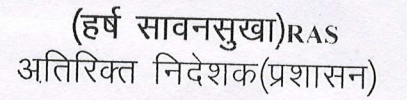 (हर्ष सावनसुखा)RAS
अतिरिक्त निदेशक(प्रशासन)